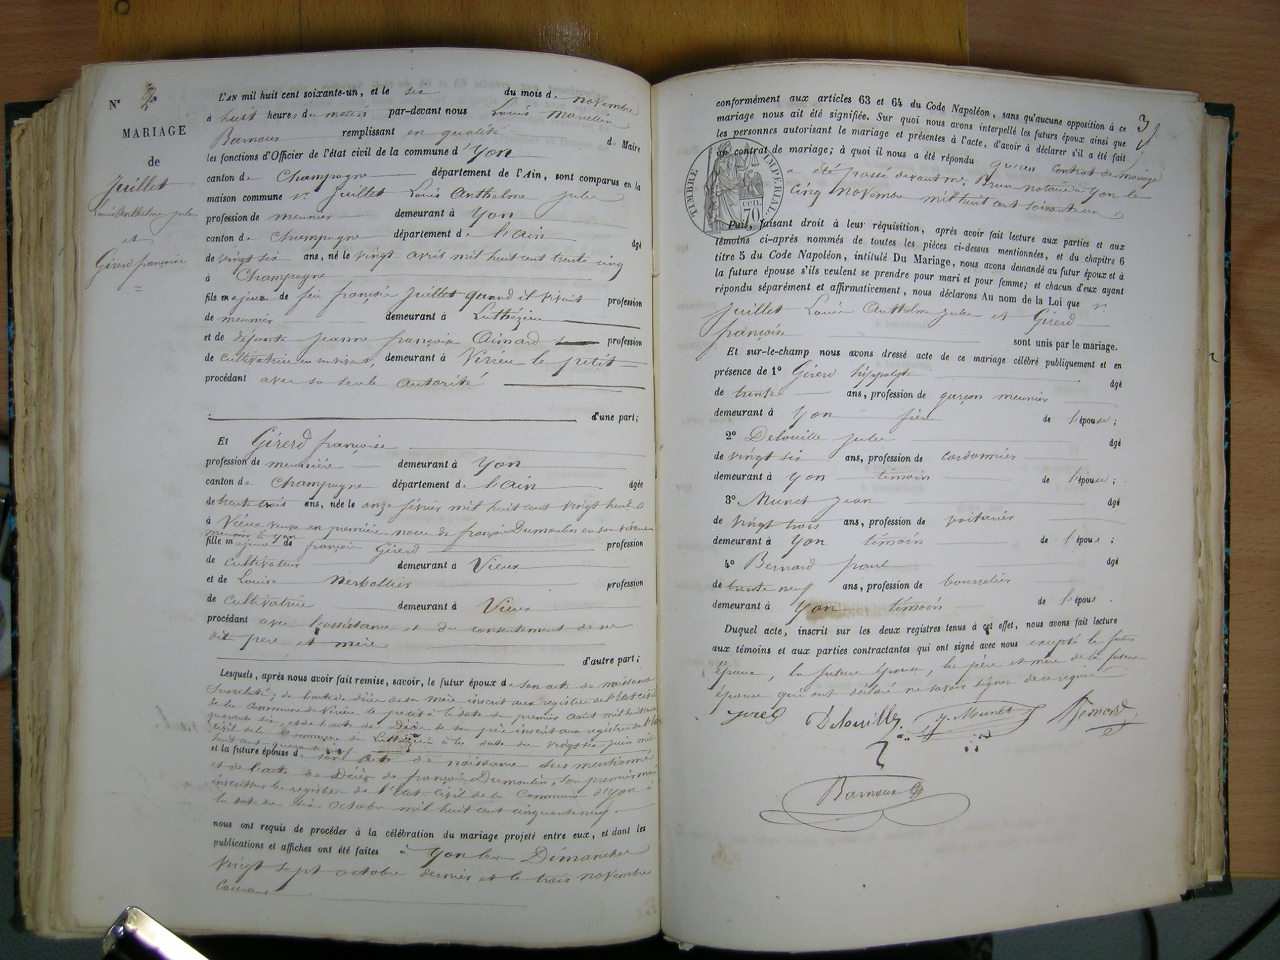 N° 2
MARIAGE
de
Juillet
Louis Anthelme Jules
et
Girerd françoise
L'AN mil huit cent soixante-un, et le six du mois de novembre
à huit heures du matin par-devant nous Louis Marcellin
Barnoux remplissant en qualité de Maire
les fonctions d'Officier de l'état civil de la commune d'Yon
canton de Champagne département de l'Ain, sont comparus en la
maison commune Sr Juillet Louis Anthelme Jules
profession de meunier demeurant à Yon
canton de Champagne département de l'ain âgé
de vingt six ans, né le vingt avril mil huit cent trente cinq
à Champagne
fils majeur de feu françois Juillet quand il vivait profession
de meunier demeurant à Luthézieu
et de défunte jeanne françoise Aimard profession
de cultivatrice demeurant à Virieu le petit
procédant avec sa seule autorité
d'une part;
Et Girerd françoise
profession de meunière demeurant à Yon
canton de Champagne département de l'ain âgée
de trente trois ans, née le onze février mil huit cent vingt huit
à Vieux veuve en premières noces de françois Dumoulin en son vivant
meunier à Yon
fille majeure de françois Girerd profession
de cultivateur demeurant à Vieux
et de Louise profession
de cultivatrice demeurant à Vieux
procédant avec l'assistance et du consentement de ses
dit père et mère
d'autre part;
Lesquels, après nous avoir fait remise, savoir, le futur époux de son acte de naissance
de l'acte de décès de sa mère inscrit aux registres de l'état civil
de la Commune de Virieu le petit à la date du premier Août mil huit cent
quarante six, et de l'acte de Décès de son père inscrit aux registres de l'état
civil de la Commune de Luthézieu à la date du vingt six juin mil
huit cent
et la future épouse de son acte de naissance sus mentionné
et de l'acte de Décès de françois Dumoulin, son premier mari
inscrit sur les registres de l'Etat Civil de la Commune d'Yon à
la date du dix Octobre mil huit cent cinquante neuf.
nous ont requis de procéder à la célébration du mariage projeté entre eux, et dont les
publications et affiches ont été faites à Yon les Dimanches
vingt sept octobre dernier et le trois novembre
courant
3
conformément aux articles 63 et 64 du Code Napoléon, sans qu'aucune opposition à ce
mariage nous ait été signifiée. Sur quoi nous avons interpellé les futurs époux ainsi que
les personnes autorisant le mariage et présentes à l'acte, d'avoir à déclarer s'il a été fait
un contrat de mariage; à quoi il nous a été répondu qu'un contrat de mariage
a été passé devant me Brun notaire à Yon le
cinq novembre mil huit cent soixante un
TIMBRE IMPÉRIAL
70
Puis, faisant droit à leur réquisition, après avoir fait lecture aux parties et aux
témoins ci-après nommés de toutes les pièces ci-dessus mentionnées, et du chapitre 6
titre 5 du Code Napoléon, intitulé Du Mariage, nous avons demandé au futur époux et à
la future épouse s'ils veulent se prendre pour mari et pour femme; et chacun d'eux ayant
répondu séparément et affirmativement, nous déclarons Au nom de la Loi que Sr
Juillet Louis Anthelme Jules et Girerd
françoise sont unis par le mariage.
Et sur-le-champ nous avons dressé acte de ce mariage célébré publiquement et en
présence de 1° Girerd hyppolyte âgé
de trente ans, profession de garçon meunier
demeurant à Yon frère de l'épouse;
2° Delouille Jules âgé
de vingt six ans, profession de cordonnier
demeurant à Yon témoin de l'épouse;
3° Munet Jean âgé
de vingt trois ans, profession de voiturier
demeurant à Yon témoin de l'époux;
4° Bernard paul âgé
de trente neuf ans, profession de bourrelier
demeurant à Yon témoin de l'époux.
Duquel acte, inscrit sur les deux registres tenus à cet effet, nous avons fait lecture
aux témoins et aux parties contractantes qui ont signé avec nous excepté le futur
époux, la future épouse, les père et mère de la future
épouse qui ont déclaré ne savoir signer de ce requis
Delouille J. Munet Bernard
Barnoux